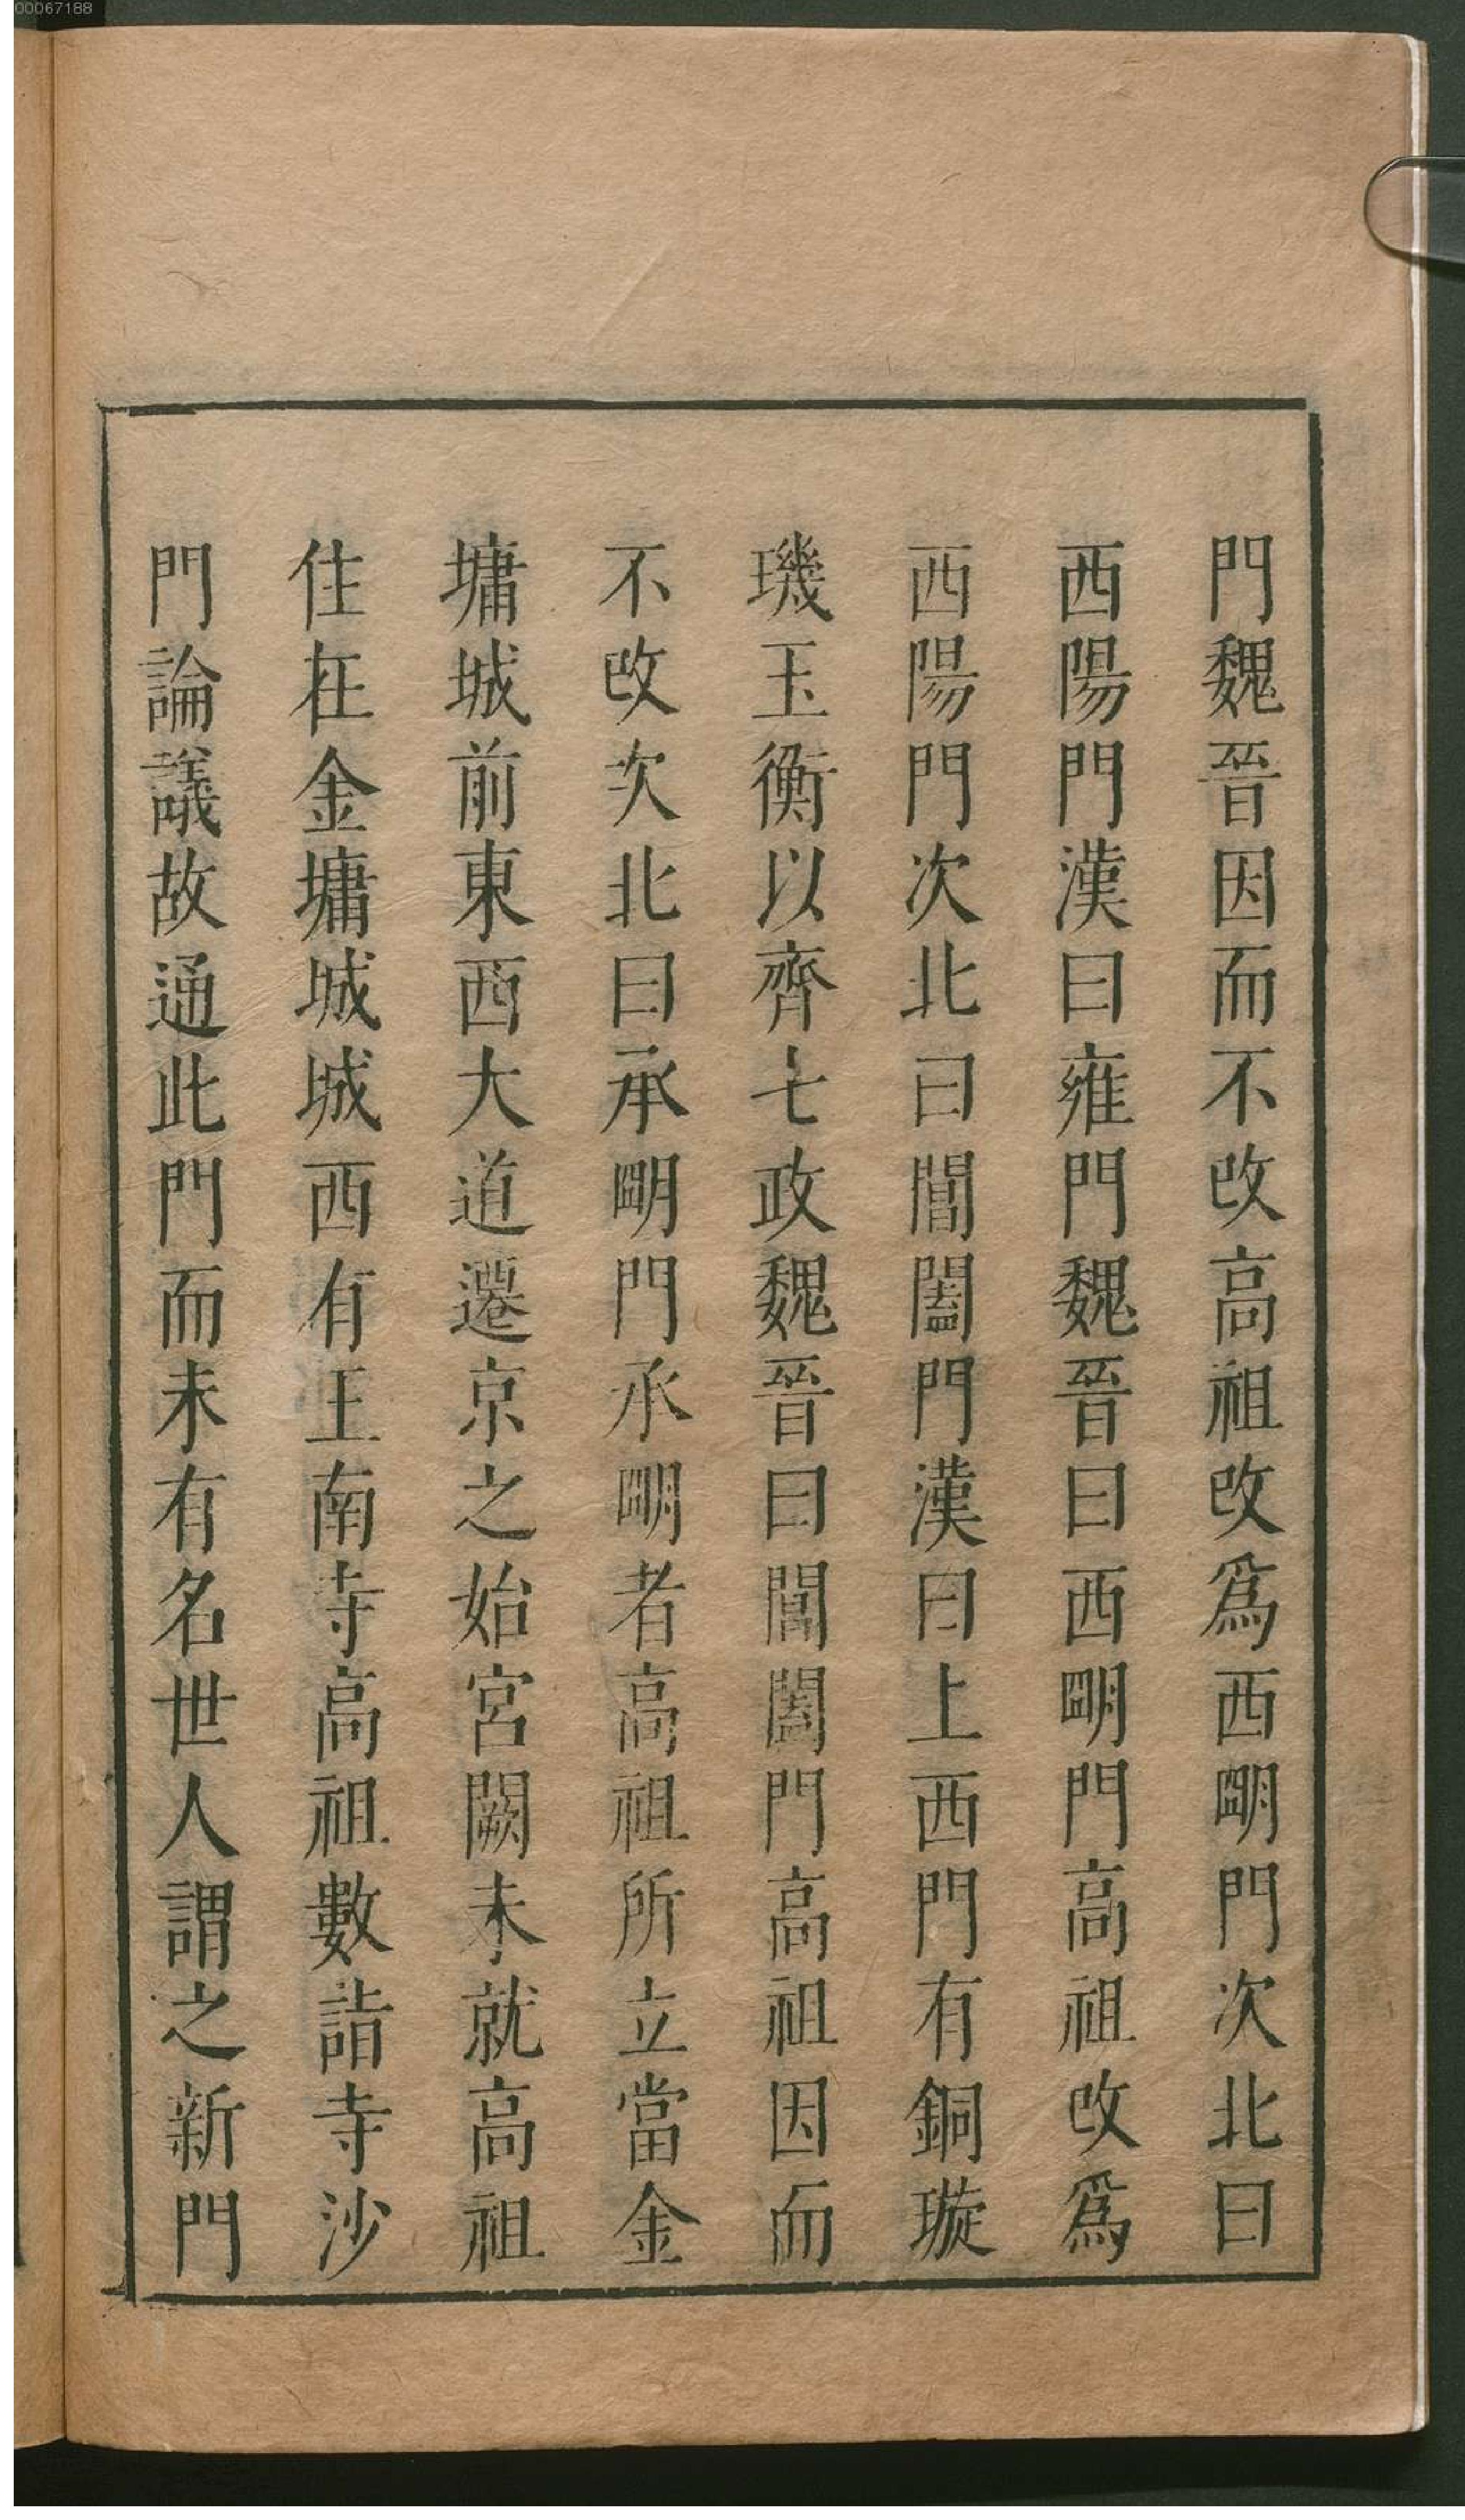 00067188
門魏晉因而不改高祖改爲西明門次北曰
西陽門漢曰雍門魏晉曰西明門高祖改爲
西陽門次北曰閶闔門漢曰上西門有銅璇
璣玉衡以齊七政魏晉曰閶闔門高祖因而
不改次北曰承明門承明者高祖所立當金
墉城前東西大道遷京之始宮闕未就高祖
住在金墉城城西有王南寺高祖數詣寺沙
門論議故通此門而未有名世人謂之新門